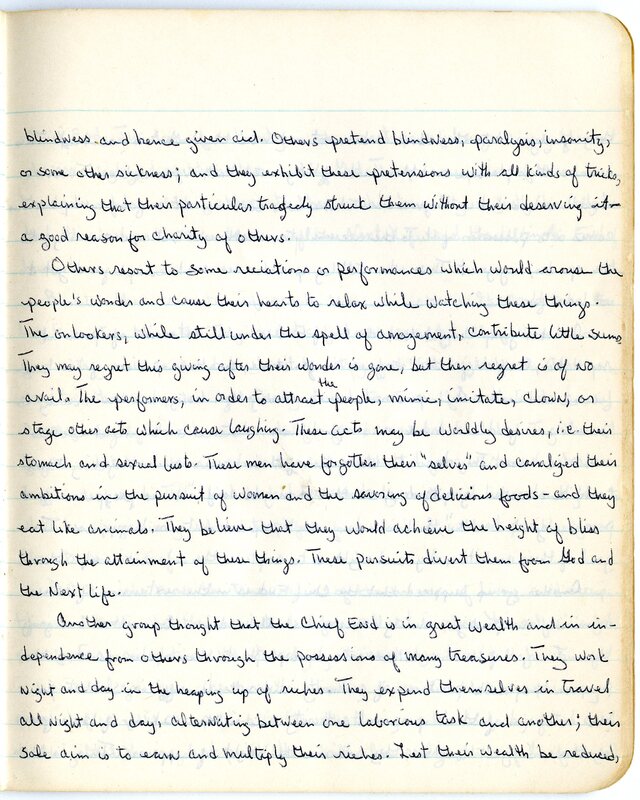 blindness and hence given aid. Others pretend blindness, paralysis, insanity,
or some other sickness; and they exhibit these pretensions with all kinds of tricks,
explaining that their particular tragedy struck them without their deserving it—
a good reason for charity of others.
Others resort to some reciations or performances which would arouse the
people's wonder and cause their hearts to relax while watching these things.
The onlookers, while still under the spell of amazement, contribute little sums.
They may regret this giving after their wonder is gone, but then regret is of no
avail. The performers, in order to attract the people, mimic, imitate, clown, or
stage other acts which cause laughing. These acts may be worldly desires, i.e. their
stomach and sexual lusts. These men have forgotten their "selves" and canalized their
ambitions in the pursuit of women and the savoring of delicious foods - and they
eat like animals. They believe that they would achieve the height of bliss
through the attainment of these things. These pursuits divert them from God and
the Next life.
Another group thought that the Chief End is in great wealth and in in-
dependence from others through the possessions of many treasures. They work
night and day in the heaping up of riches. They expend themselves in travel
all night and day, alternating between one laborious task and another; their
sole aim is to earn and multiply their riches. Lest their wealth be reduced,